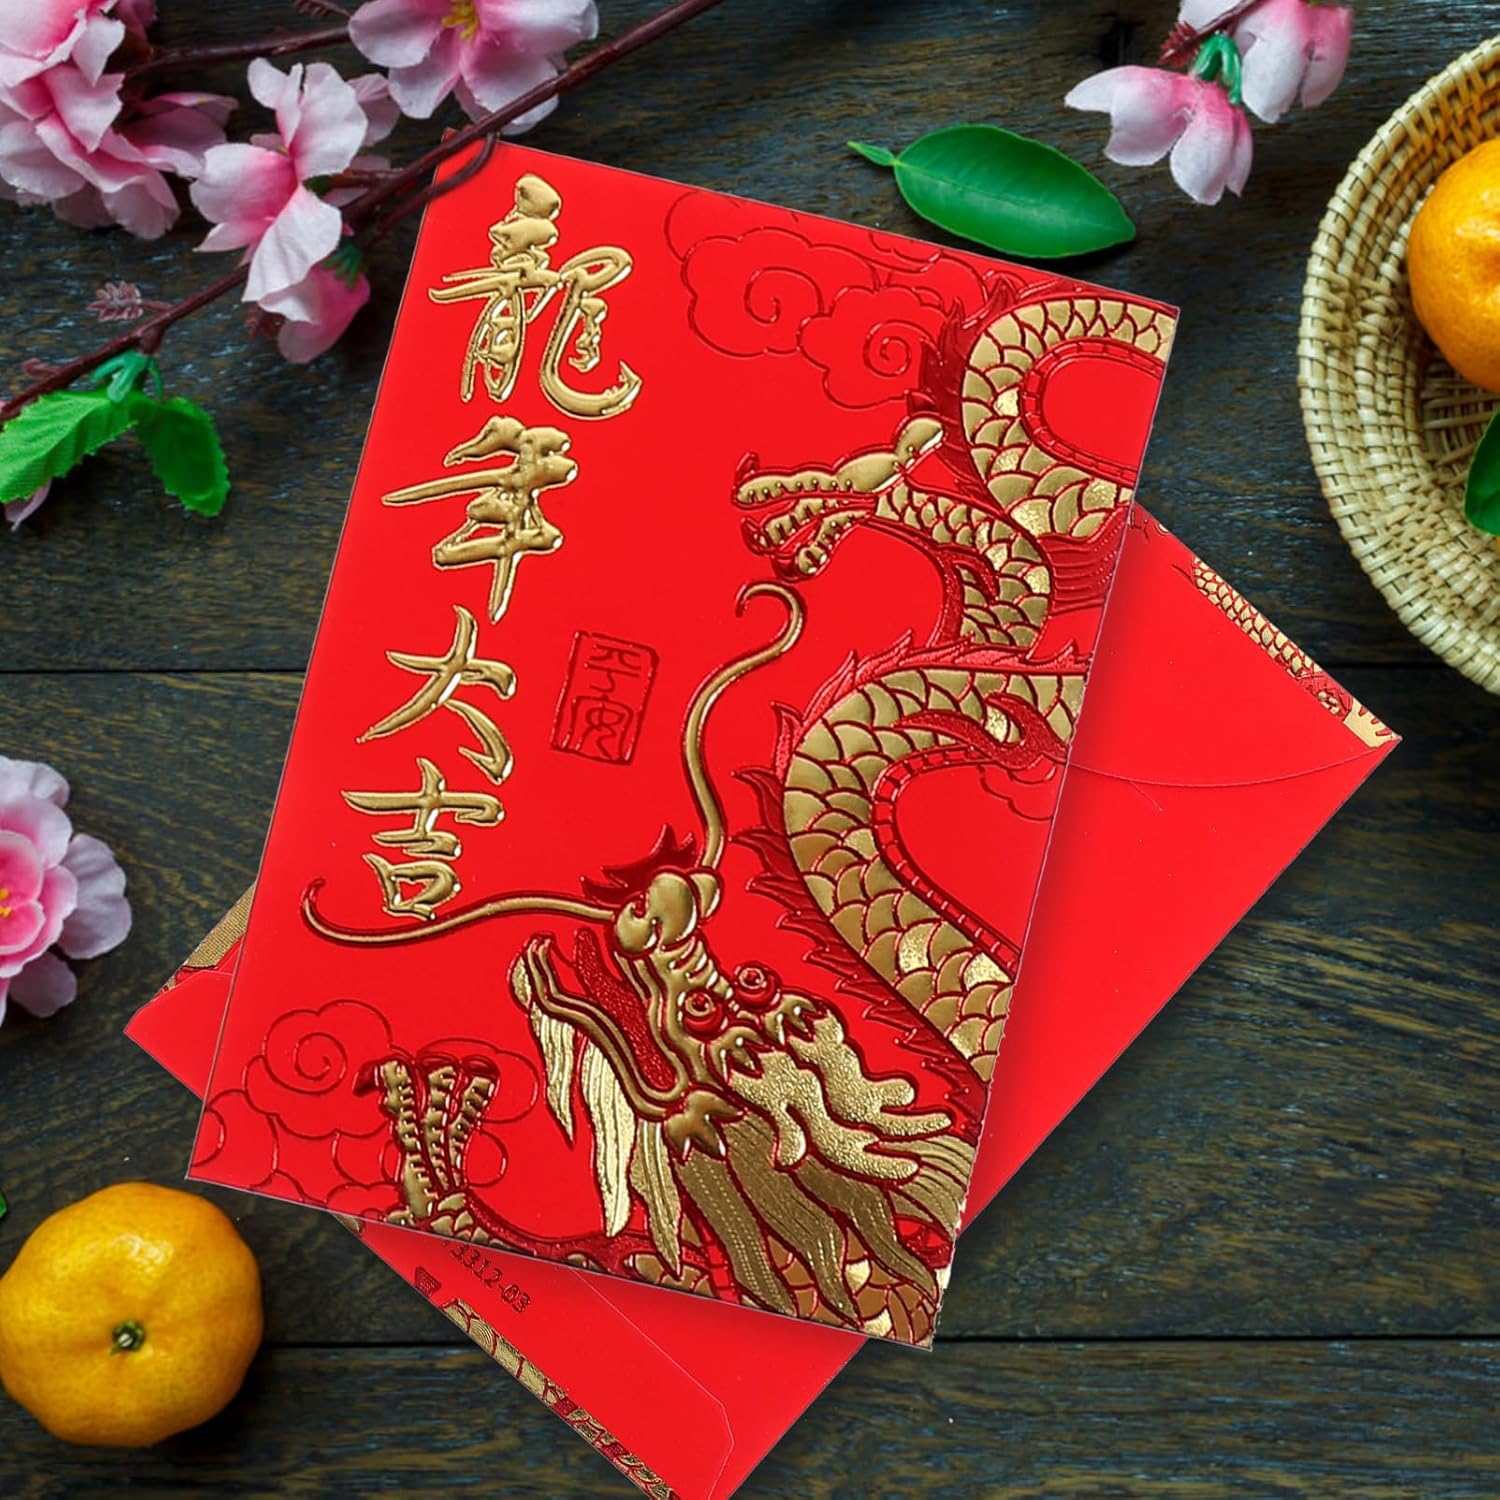 龍年大吉
平安
3312-03